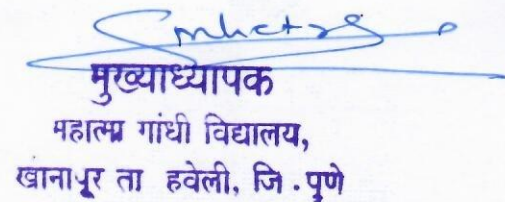 मुख्याध्यापक
महात्मा गांधी विद्यालय,
खानापूर ता हवेली, जि . पुणे